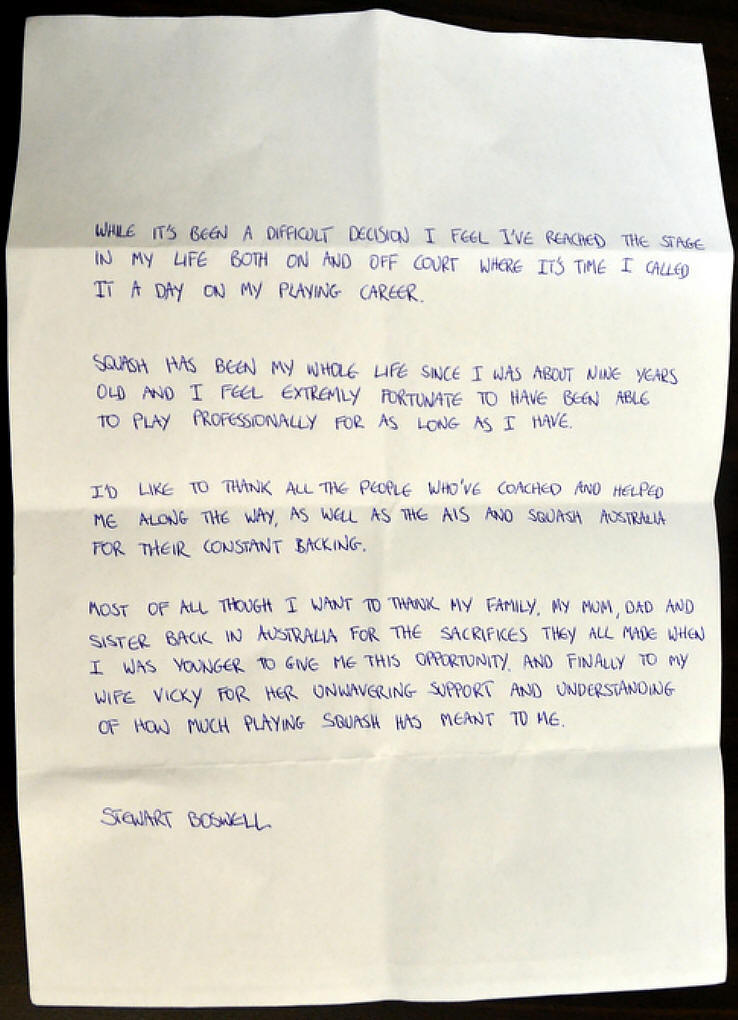 WHILE IT'S BEEN A DIFFICULT DECISION I FEEL I'VE REACHED THE STAGE
IN MY LIFE BOTH ON AND OFF COURT WHERE IT'S TIME I CALLED
IT A DAY ON MY PLAYING CAREER.
SQUASH HAS BEEN MY WHOLE LIFE SINCE I WAS ABOUT NINE YEARS
OLD AND I FEEL EXTREMLY FORTUNATE TO HAVE BEEN ABLE
TO PLAY PROFESSIONALLY FOR AS LONG AS I HAVE.
I'D LIKE TO THANK ALL THE PEOPLE WHO'VE COACHED AND HELPED
ME ALONG THE WAY, AS WELL AS THE AIS AND SQUASH AUSTRALIA
FOR THEIR CONSTANT BACKING.
MOST OF ALL THOUGH I WANT TO THANK MY FAMILY, MY MUM, DAD AND
SISTER BACK IN AUSTRALIA FOR THE SACRIFICES THEY ALL MADE WHEN
I WAS YOUNGER TO GIVE ME THIS OPPORTUNITY, AND FINALLY TO MY
WIFE VICKY FOR HER UNWAVERING SUPPORT AND UNDERSTANDING
OF HOW MUCH PLAYING SQUASH HAS MEANT TO ME.
STEWART BOSWELL